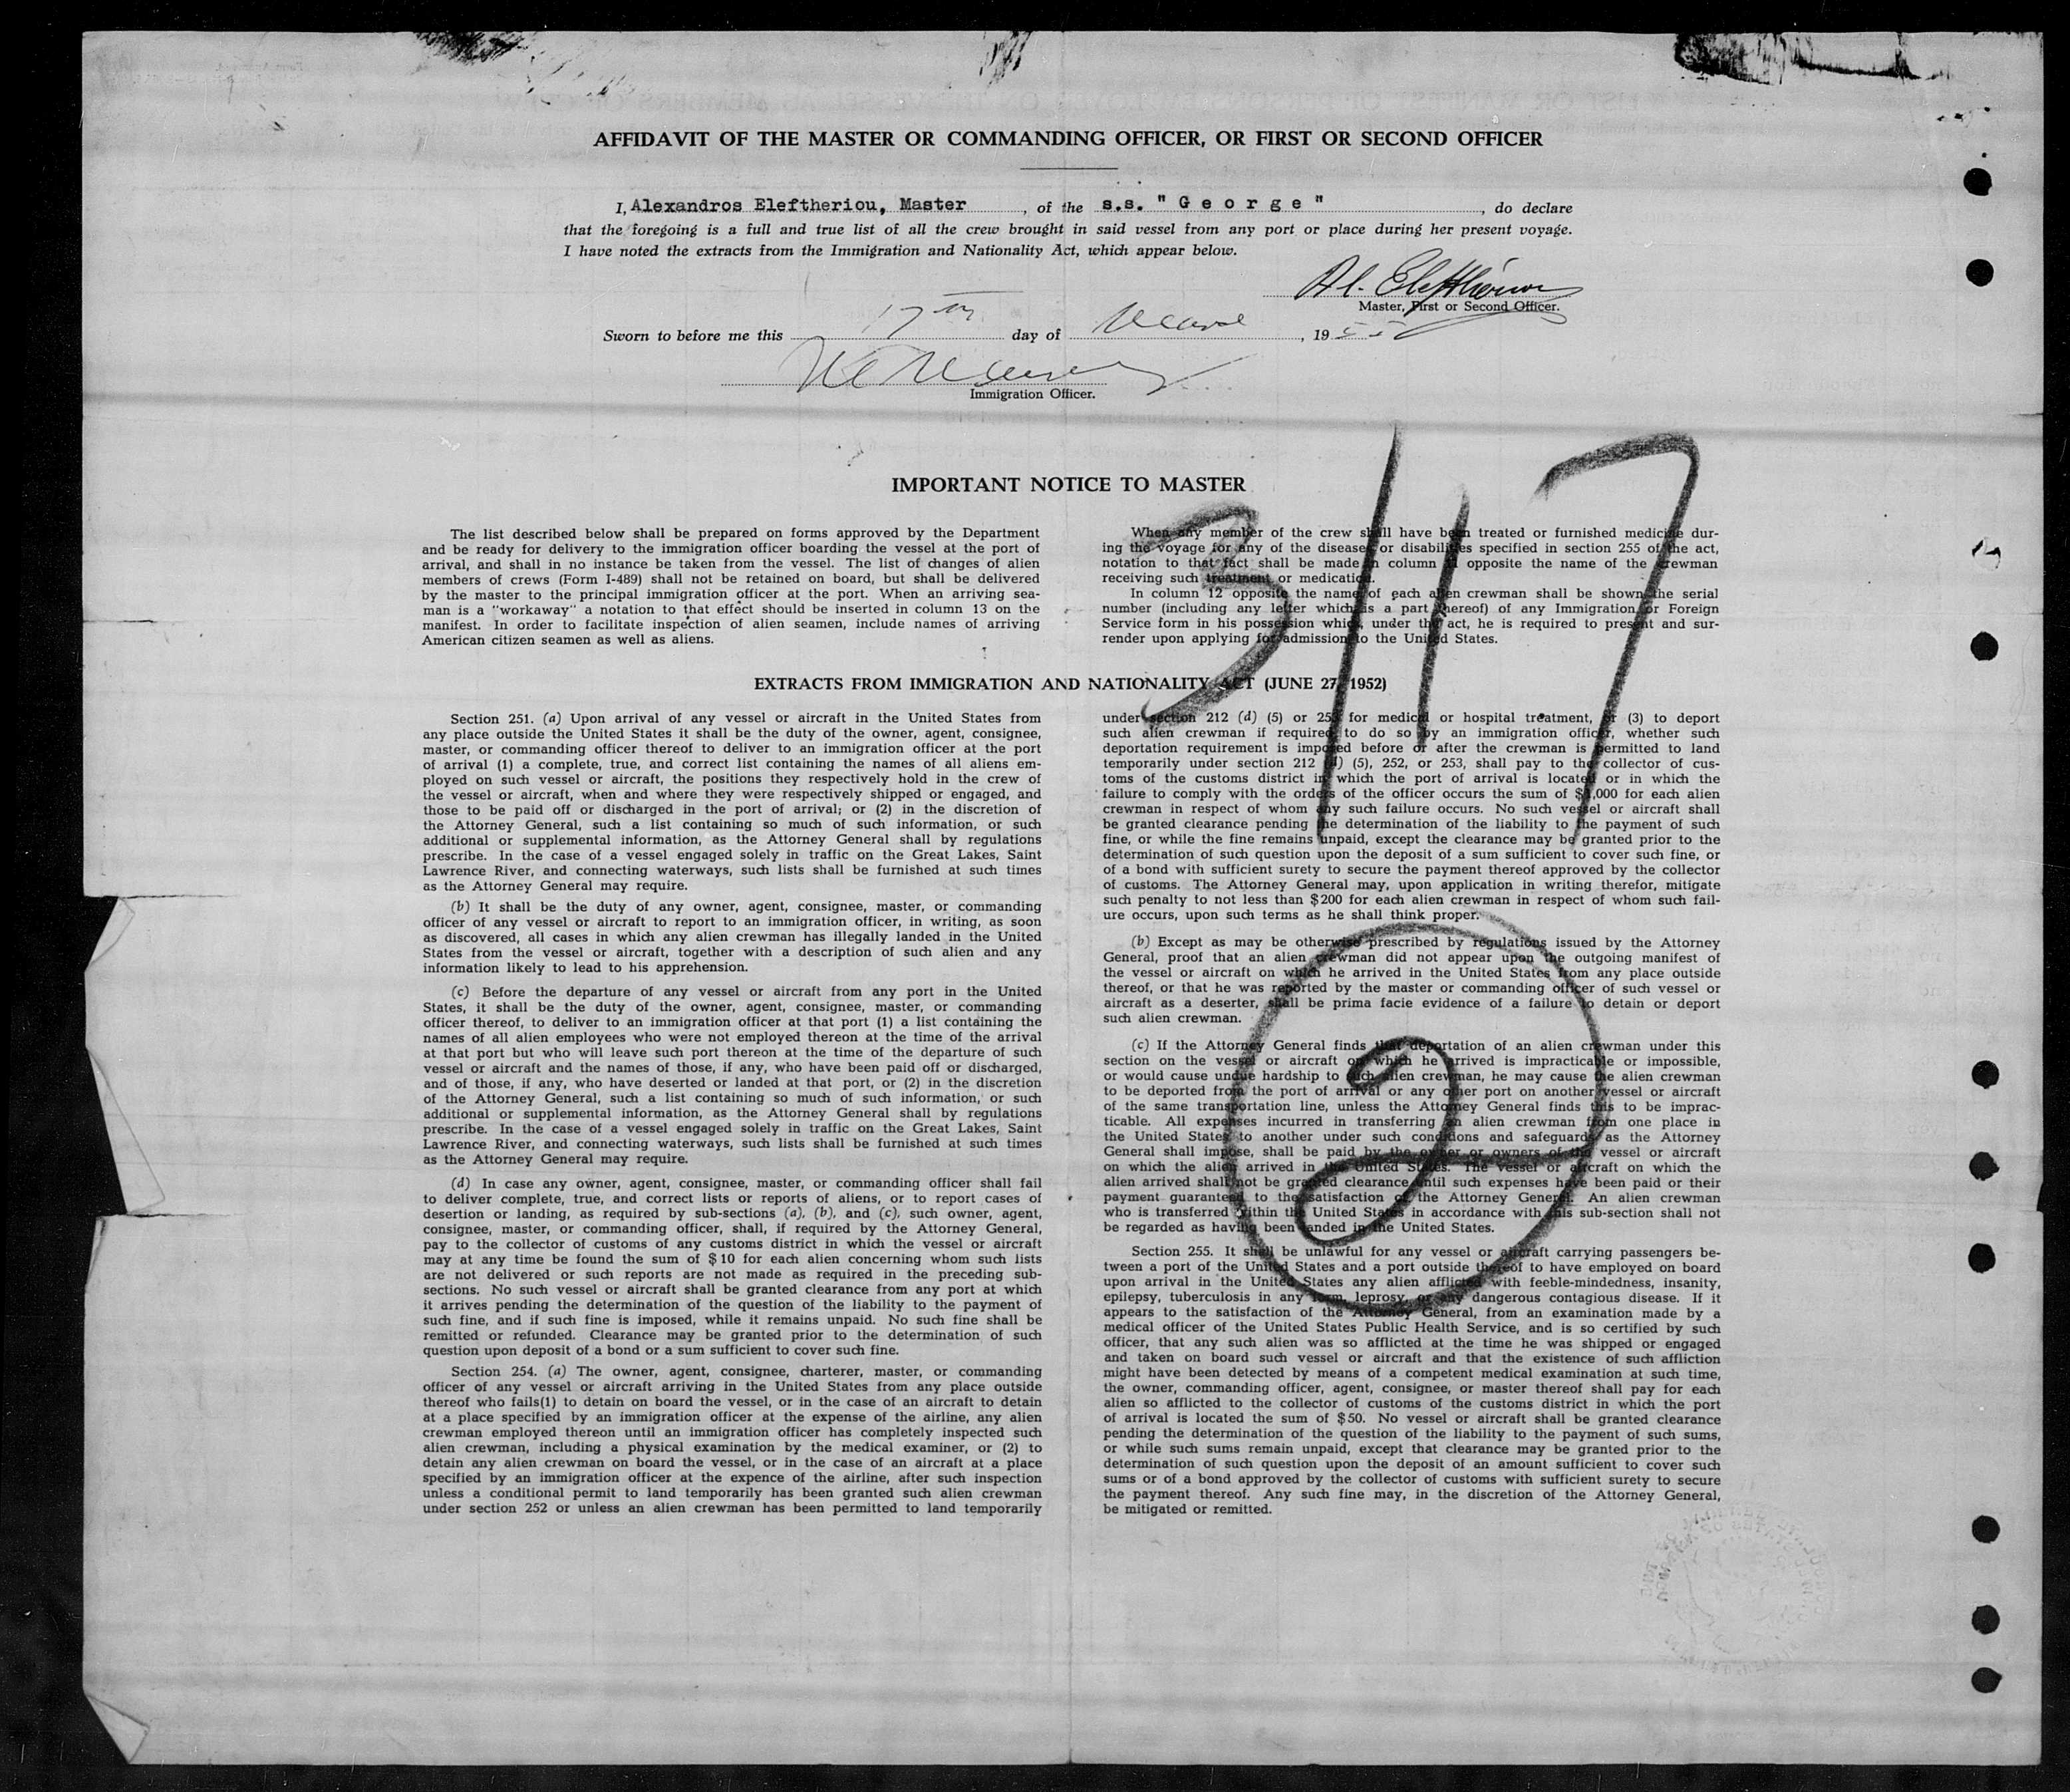 AFFIDAVIT OF THE MASTER OR COMMANDING OFFICER, OR FIRST OR SECOND OFFICER
I, Alexandros Eleftheriou, Master, of the s.s. "George", do declare
that the foregoing is a full and true list of all the crew brought in said vessel from any port or place during her present voyage.
I have noted the extracts from the Immigration and Nationality Act, which appear below.
Al. Eleftheriou
Master, First or Second Officer.
Sworn to before me this 17th day of March, 1955
Immigration Officer.
IMPORTANT NOTICE TO MASTER
The list described below shall be prepared on forms approved by the Department
and be ready for delivery to the immigration officer boarding the vessel at the port of
arrival, and shall in no instance be taken from the vessel. The list of changes of alien
members of crews (Form I-489) shall not be retained on board, but shall be delivered
by the master to the principal immigration officer at the port. When an arriving sea-
man is a "workaway" a notation to that effect should be inserted in column 13 on the
manifest. In order to facilitate inspection of alien seamen, include names of arriving
American citizen seamen as well as aliens.
When any member of the crew shall have been treated or furnished medicine dur-
ing the voyage for any of the diseases or disabilities specified in section 255 of the act,
notation to that fact shall be made in column opposite the name of the crewman
receiving such treatment or medication.
In column 12 opposite the name of each alien crewman shall be shown the serial
number (including any letter which is a part thereof) of any Immigration or Foreign
Service form in his possession which, under the act, he is required to present and sur-
render upon applying for admission to the United States.
3/17
EXTRACTS FROM IMMIGRATION AND NATIONALITY ACT (JUNE 27, 1952)
Section 251. (a) Upon arrival of any vessel or aircraft in the United States from
any place outside the United States it shall be the duty of the owner, agent, consignee,
master, or commanding officer thereof to deliver to an immigration officer at the port
of arrival (1) a complete, true, and correct list containing the names of all aliens em-
ployed on such vessel or aircraft, the positions they respectively hold in the crew of
the vessel or aircraft, when and where they were respectively shipped or engaged, and
those to be paid off or discharged in the port of arrival; or (2) in the discretion of
the Attorney General, such a list containing so much of such information, or such
additional or supplemental information, as the Attorney General shall by regulations
prescribe. In the case of a vessel engaged solely in traffic on the Great Lakes, Saint
Lawrence River, and connecting waterways, such lists shall be furnished at such times
as the Attorney General may require.
(b) It shall be the duty of any owner, agent, consignee, master, or commanding
officer of any vessel or aircraft to report to an immigration officer, in writing, as soon
as discovered, all cases in which any alien crewman has illegally landed in the United
States from the vessel or aircraft, together with a description of such alien and any
information likely to lead to his apprehension.
(c) Before the departure of any vessel or aircraft from any port in the United
States, it shall be the duty of the owner, agent, consignee, master, or commanding
officer thereof, to deliver to an immigration officer at that port (1) a list containing the
names of all alien employees who were not employed thereon at the time of the arrival
at that port but who will leave such port thereon at the time of the departure of such
vessel or aircraft and the names of those, if any, who have been paid off or discharged,
and of those, if any, who have deserted or landed at that port, or (2) in the discretion
of the Attorney General, such a list containing so much of such information, or such
additional or supplemental information, as the Attorney General shall by regulations
prescribe. In the case of a vessel engaged solely in traffic on the Great Lakes, Saint
Lawrence River, and connecting waterways, such lists shall be furnished at such times
as the Attorney General may require.
(d) In case any owner, agent, consignee, master, or commanding officer shall fail
to deliver complete, true, and correct lists or reports of aliens, or to report cases of
desertion or landing, as required by sub-sections (a), (b), and (c), such owner, agent,
consignee, master, or commanding officer, shall, if required by the Attorney General,
pay to the collector of customs of any customs district in which the vessel or aircraft
may at any time be found the sum of $10 for each alien concerning whom such lists
are not delivered or such reports are not made as required in the preceding sub-
sections. No such vessel or aircraft shall be granted clearance from any port at which
it arrives pending the determination of the question of the liability to the payment of
such fine, and if such fine is imposed, while it remains unpaid. No such fine shall be
remitted or refunded. Clearance may be granted prior to the determination of such
question upon deposit of a bond or a sum sufficient to cover such fine.
Section 254. (a) The owner, agent, consignee, charterer, master, or commanding
officer of any vessel or aircraft arriving in the United States from any place outside
thereof who fails(1) to detain on board the vessel, or in the case of an aircraft to detain
at a place specified by an immigration officer at the expense of the airline, any alien
crewman employed thereon until an immigration officer has completely inspected such
alien crewman, including a physical examination by the medical examiner, or (2) to
detain any alien crewman on board the vessel, or in the case of an aircraft at a place
specified by an immigration officer at the expence of the airline, after such inspection
unless a conditional permit to land temporarily has been granted such alien crewman
under section 252 or unless an alien crewman has been permitted to land temporarily
under section 212 (d) (5) or 253 for medical or hospital treatment, or (3) to deport
such alien crewman if required to do so by an immigration officer, whether such
deportation requirement is imposed before or after the crewman is permitted to land
temporarily under section 212 (d) (5), 252, or 253, shall pay to the collector of cus-
toms of the customs district in which the port of arrival is located or in which the
failure to comply with the orders of the officer occurs the sum of $1,000 for each alien
crewman in respect of whom any such failure occurs. No such vessel or aircraft shall
be granted clearance pending the determination of the liability to the payment of such
fine, or while the fine remains unpaid, except the clearance may be granted prior to the
determination of such question upon the deposit of a sum sufficient to cover such fine, or
of a bond with sufficient surety to secure the payment thereof approved by the collector
of customs. The Attorney General may, upon application in writing therefor, mitigate
such penalty to not less than $200 for each alien crewman in respect of whom such fail-
ure occurs, upon such terms as he shall think proper.
(b) Except as may be otherwise prescribed by regulations issued by the Attorney
General, proof that an alien crewman did not appear upon the outgoing manifest of
the vessel or aircraft on which he arrived in the United States from any place outside
thereof, or that he was reported by the master or commanding officer of such vessel or
aircraft as a deserter, shall be prima facie evidence of a failure to detain or deport
such alien crewman.
(c) If the Attorney General finds that deportation of an alien crewman under this
section on the vessel or aircraft on which he arrived is impracticable or impossible,
or would cause undue hardship to such alien crewman, he may cause the alien crewman
to be deported from the port of arrival or any other port on another vessel or aircraft
of the same transportation line, unless the Attorney General finds this to be imprac-
ticable. All expenses incurred in transferring an alien crewman from one place in
the United States to another under such conditions and safeguards as the Attorney
General shall impose, shall be paid by the owner or owners of the vessel or aircraft
on which the alien arrived in the United States. The vessel or aircraft on which the
alien arrived shall not be granted clearance until such expenses have been paid or their
payment guaranteed to the satisfaction of the Attorney General. An alien crewman
who is transferred within the United States in accordance with this sub-section shall not
be regarded as having been landed in the United States.
2
Section 255. It shall be unlawful for any vessel or aircraft carrying passengers be-
tween a port of the United States and a port outside thereof to have employed on board
upon arrival in the United States any alien afflicted with feeble-mindedness, insanity,
epilepsy, tuberculosis in any form, leprosy, or any dangerous contagious disease. If it
appears to the satisfaction of the Attorney General, from an examination made by a
medical officer of the United States Public Health Service, and is so certified by such
officer, that any such alien was so afflicted at the time he was shipped or engaged
and taken on board such vessel or aircraft and that the existence of such affliction
might have been detected by means of a competent medical examination at such time,
the owner, commanding officer, agent, consignee, or master thereof shall pay for each
alien so afflicted to the collector of customs of the customs district in which the port
of arrival is located the sum of $50. No vessel or aircraft shall be granted clearance
pending the determination of the question of the liability to the payment of such sums,
or while such sums remain unpaid, except that clearance may be granted prior to the
determination of such question upon the deposit of an amount sufficient to cover such
sums or of a bond approved by the collector of customs with sufficient surety to secure
the payment thereof. Any such fine may, in the discretion of the Attorney General,
be mitigated or remitted.